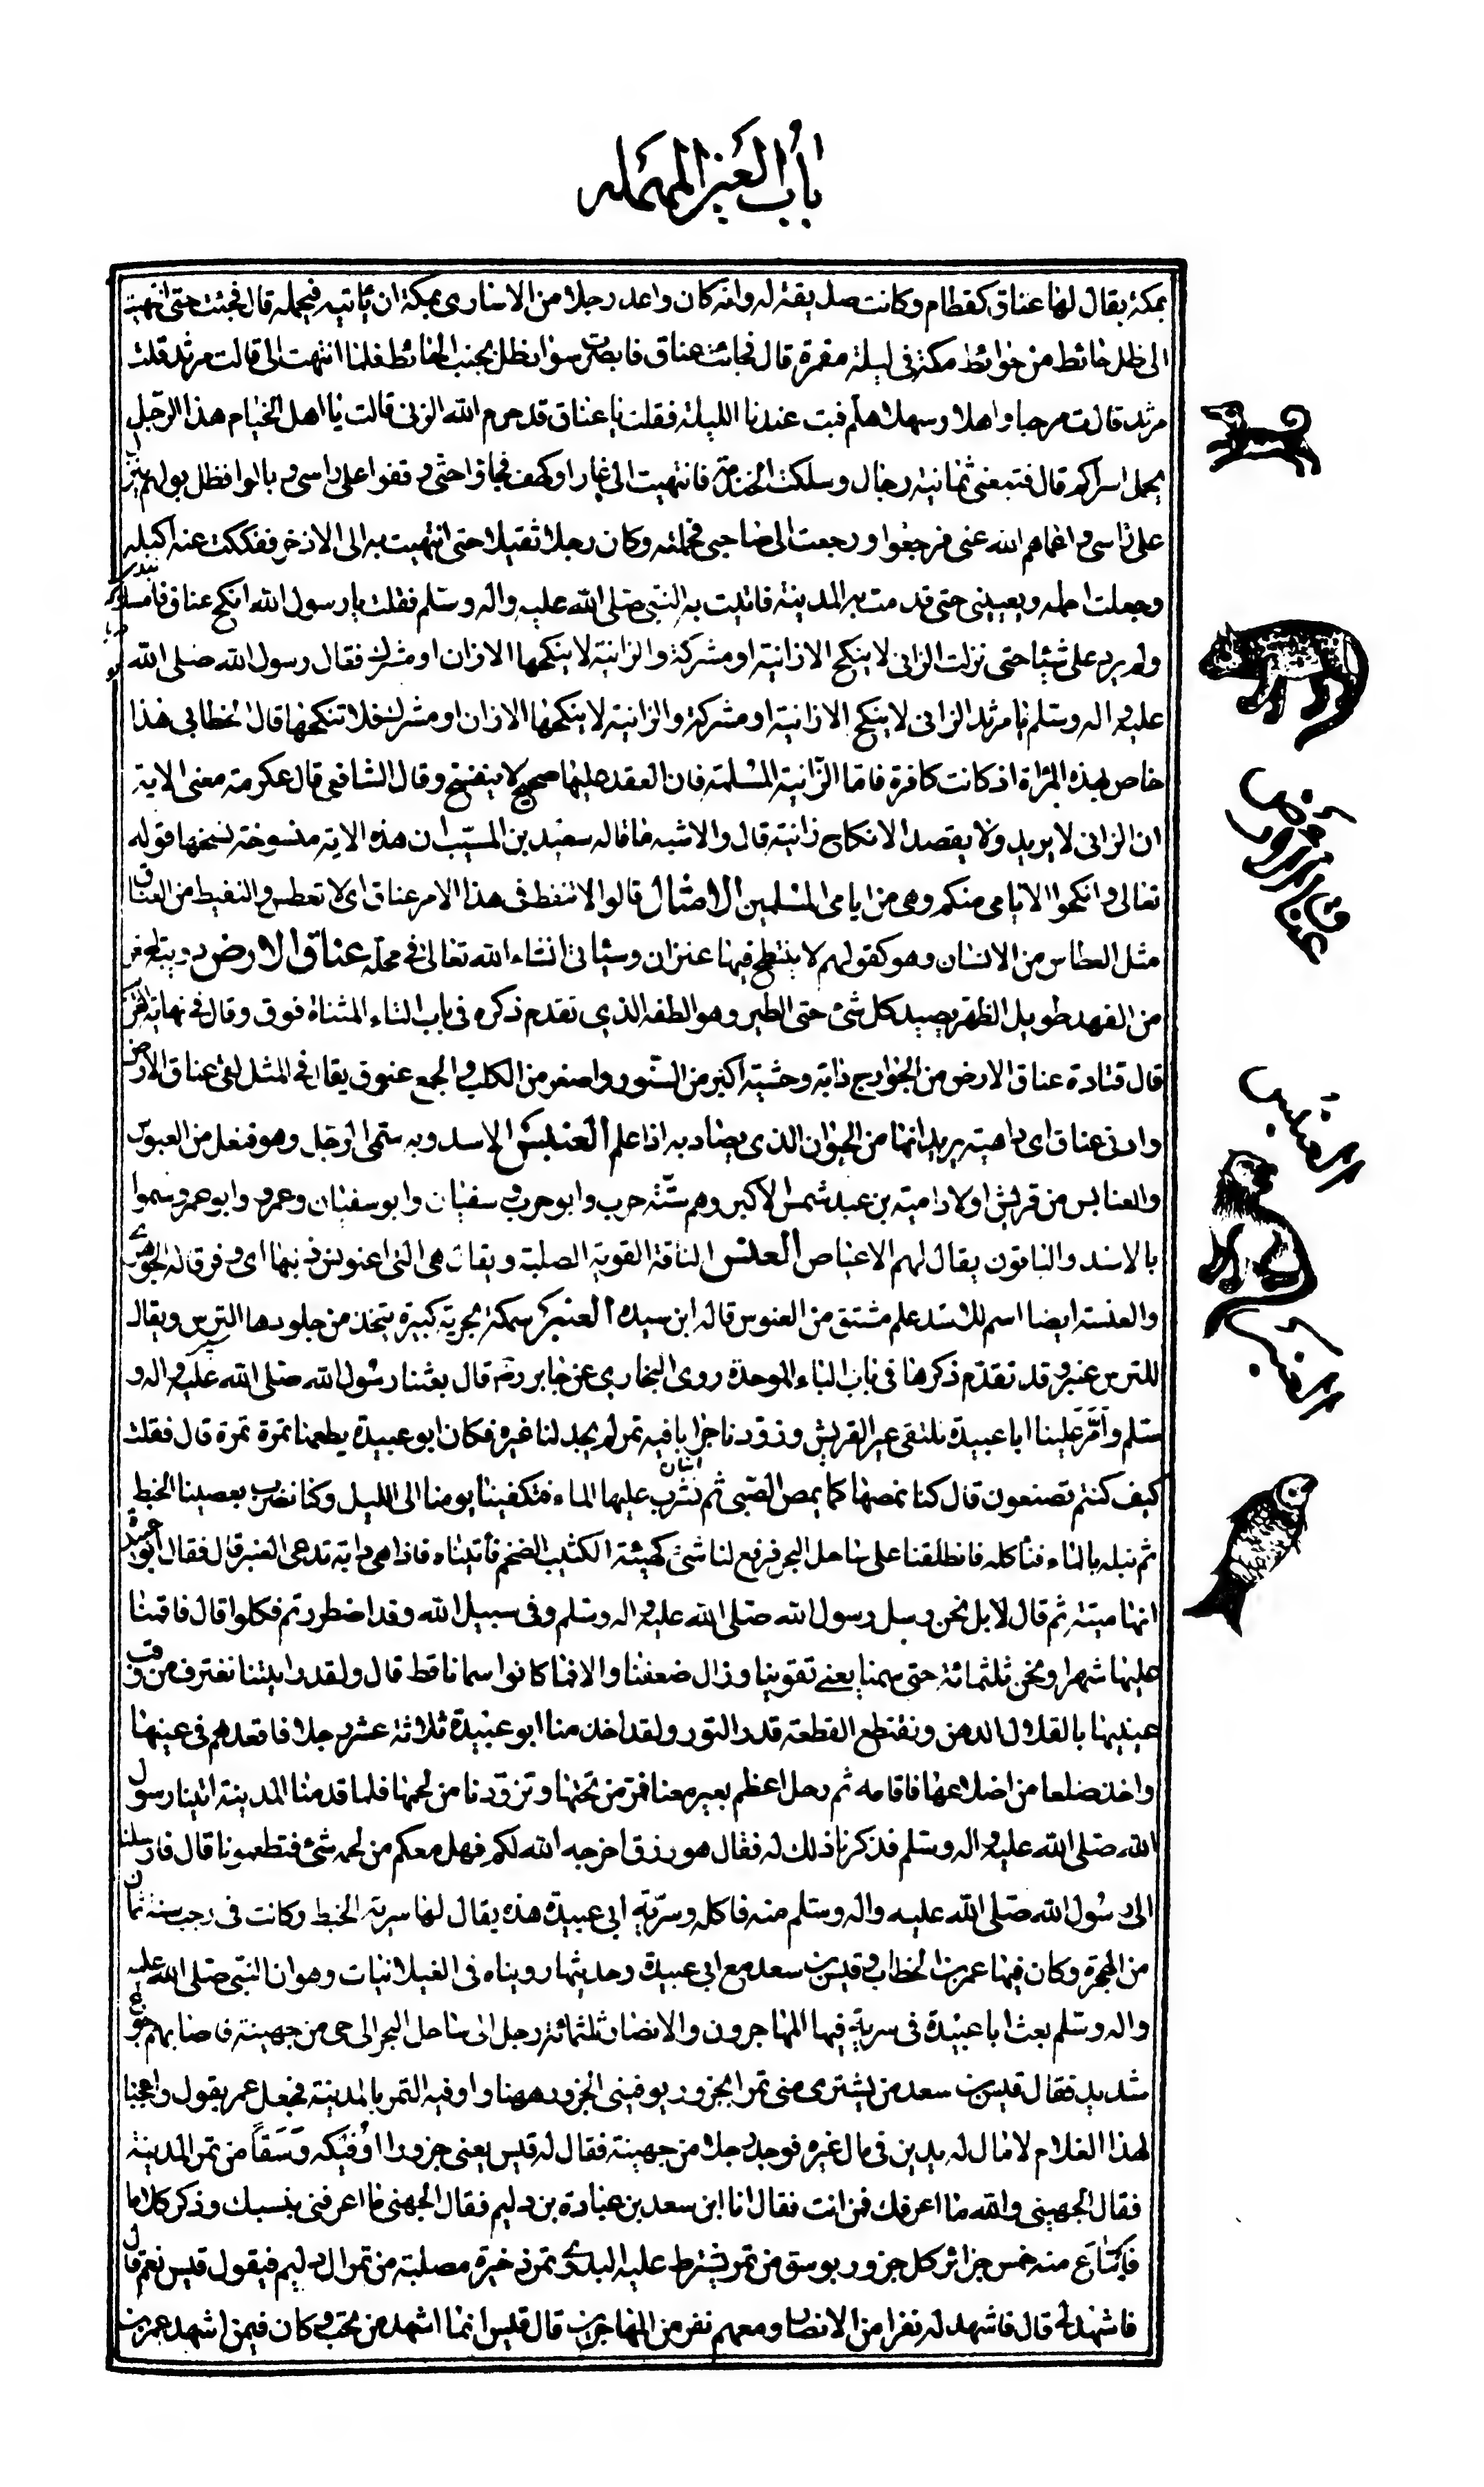 باب العين المهملة
بمكة يقال لها عناق كقطام وكانت صديقة له وانه كان واعد رجلا من الاسارى بمكة ان ياتيه فيحمله قال فجئت حتى انتهيت
الى ظل حائط من حوائط مكة فى ليلة مقمرة قال فجائت عناق فابصرت سواد ظل بجنب الحائط فلما انتهت الى قالت مرثد قلت
مرثد قالت مرحبا واهلا وسهلا هلم فبت عندنا الليلة فقلت يا عناق قد حرم الله الزنى قالت يا اهل الخيام هذا الرجل
يحمل اسراكم قال فتبعنى ثمانية رجال وسلكت الخندمة فانتهيت الى غار او كهف فجاؤا حتى وقفوا على راسى وبالوا فظل بولهم ينزل
على راسى واعماهم الله عنى فرجعوا ورجعت الى صاحبى فحملته وكان رجلا ثقيلا حتى انتهيت به الى الاذخر ففككت عنه اكبله
وجعلت احمله ويعيينى حتى قدمت به المدينة فاتيت به النبى صلى الله عليه واله وسلم فقلت يا رسول الله انكح عناق فامسك
ولم يرد على شيئا حتى نزلت الزانى لا ينكح الا زانية او مشركة والزانية لا ينكحها الا زان او مشرك فقال رسول الله صلى الله
عليه واله وسلم يا مرثد الزانى لا ينكح الا زانية او مشركة والزانية لا ينكحها الا زان او مشرك فلا تنكحها قال الخطابى هذا
خاص بهذه المراة اذ كانت كافرة فاما الزانية المسلمة فان العقد عليها صحيح لا ينفسخ وقال الشافعى قال عكرمة معنى الاية
ان الزانى لا يريد ولا يقصد الا نكاح زانية قال والاشبه ما قاله سعيد بن المسيب ان هذه الاية منسوخة نسخها قوله
تعالى وانكحوا الايامى منكم وهى من ايامى المسلمين الامثال قالوا لا تنفط فى هذا الامر عناق اى لا تعطس والنفيط من العناق
مثل العطاس من الانسان وهو كقولهم لا ينتطح فيها عنزان وسيأتى انشاء الله تعالى فى محله عناق الارض دويبة اصغر
من الفهد طويل الظهر يصيد كل شئ حتى الطير وهو الطفه الذى تقدم ذكره فى باب التاء المثناة فوق وقال فى نهاية الغريب
قال قتادة عناق الارض من الجوارح دابة وحشية اكبر من السنور واصغر من الكلب والجمع عنوق يقال فى المثل لقى عناق الارض
واذنى عناق اى داهية يريد انها من الحيوان الذى يصاد به اذا علم العنبس الاسد وبه سمى الرجل وهو فنعل من العبوس
والعنابس من قريش اولاد امية بن عبد شمس الاكبر وهم ستة حرب وابو حرب وسفيان وابو سفيان وعمرو وابو عمرو سموا
بالاسد والباقون يقال لهم الاعياص العنس الناقة القوية الصلبة ويقال هى التى اعنونس ذنبها اى وفر قاله الجوهرى
والعنسة ايضا اسم للاسد علم مشتق من العنوس قاله ابن سيده العنبر سمكة بحرية كبيرة يتخذ من جلودها الترس ويقال
للترس عنبر وقد تقدم ذكرها فى باب الباء الموحدة روى البخارى عن جابر رضه قال بعثنا رسول الله صلى الله عليه واله و
سلم وامر علينا ابا عبيدة نلتقى عير القريش وزودنا جرابا فيه تمر لم يجد لنا غيره فكان ابو عبيدة يطعمنا تمرة تمرة قال فقلت
كيف كنتم تصنعون قال كنا نمصها كما يمص الصبى ثم نشرب عليها الماء فتكفينا يومنا الى الليل وكنا نضرب بعصينا الخبط
ثم نبله بالماء فنأكله فانطلقنا على ساحل البحر فرفع لنا شئ كهيئة الكثيب الضخم فأتيناه فاذا هى دابة تدعى العنبر قال فقال ابو عبيدة
انها ميتة ثم قال لا بل نحن رسل رسول الله صلى الله عليه واله وسلم وفى سبيل الله وقد اضطررتم فكلوا قال فاقمنا
عليها شهرا ونحن ثلثمائة حتى سمنا يعنى تقوينا وزال ضعفنا والا فما كانوا سمانا قط قال ولقد رايتنا نغترف من وقب
عينيها بالقلال الدهن ونقتطع القطعة قدر الثور ولقد اخذ منا ابو عبيدة ثلاثة عشر رجلا فاقعدهم فى عينها
واخذ ضلعا من اضلاعها فاقامه ثم رحل اعظم بعير معنا فمر من تحتها وتزودنا من لحمها فلما قدمنا المدينة اتينا رسول
الله صلى الله عليه واله وسلم فذكرنا ذلك له فقال هو رزق اخرجه الله لكم فهل معكم من لحمه شئ فتطعمونا قال فارسلنا
الى رسول الله صلى الله عليه واله وسلم منه فاكله وسرية ابى عبيدة هذه يقال لها سرية الخبط وكانت فى رجب سنة ثمان
من الهجرة وكان فيها عمر بن الخطاب وقيس بن سعد مع ابى عبيدة وحديثها رويناه فى الغيلانيات وهو ان النبى صلى الله عليه
واله وسلم بعث ابا عبيدة فى سرية فيها المهاجرون والانصار ثلثمائة رجل الى ساحل البحر الى حى من جهينة فاصابهم جوع
شديد فقال قيس بن سعد من يشترى منى تمرا بجزور يوفينى الجزور ههنا واوفيه التمر بالمدينة فجعل عمر يقول واعجبا
لهذا الغلام لا مال له يدين فى مال غيره فوجد رجلا من جهينة فقال له قيس بعنى جزورا اوفيكه وسقا من تمر المدينة
فقال الجهينى والله ما اعرفك فمن انت فقال انا ابن سعد بن عبادة بن دليم فقال الجهنى ما اعرفنى بنسبك وذكر كلاما
فابتاع منه خمس جزائر كل جزور بوسق من تمر يشترط عليه البدوى تمر ذخيرة مصلبة من تمر ال دليم فيقول قيس نعم قال
فاشهد لى قال فاشهد له نفرا من الانصار ومعهم نفر من المهاجرين قال قيس انما اشهد من تحب وكان فيمن اشهد عمر بن
عناق الارض
العنبس
العنبر